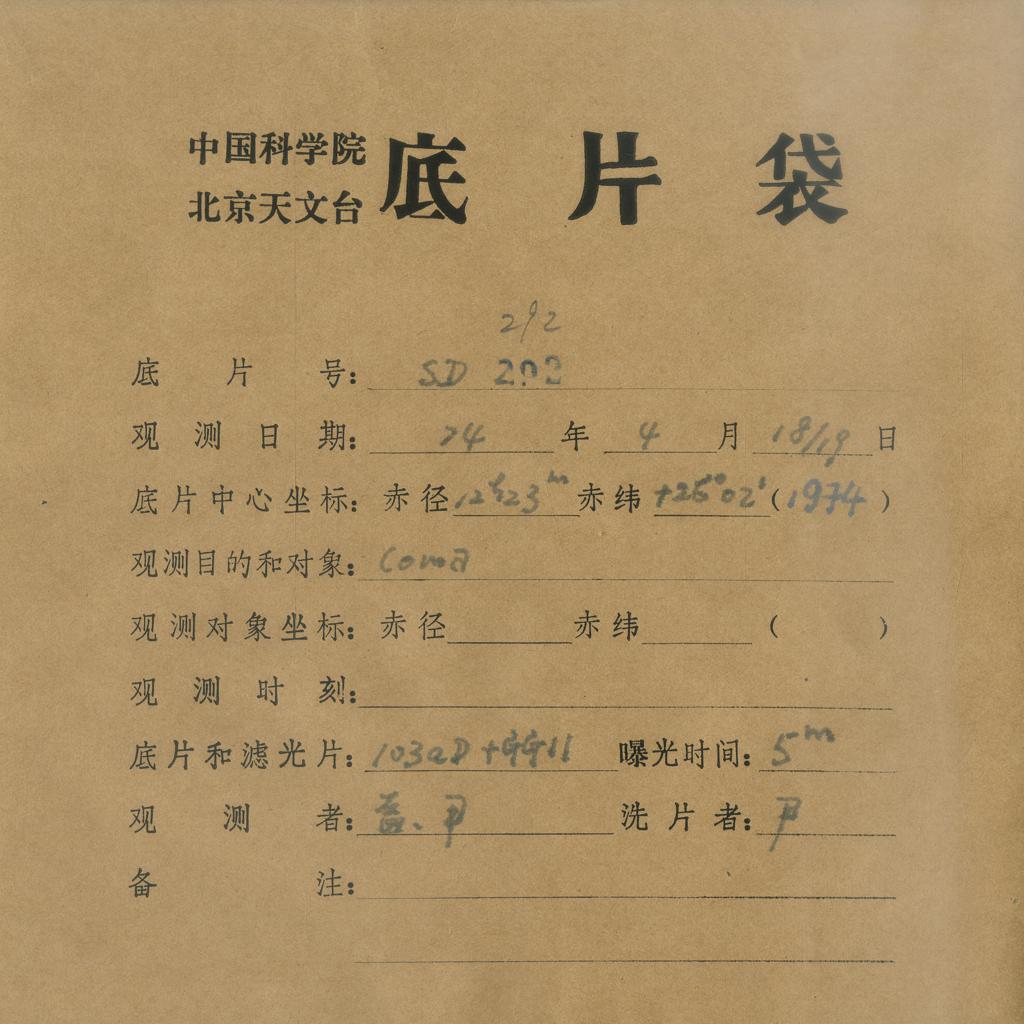 中国科学院
北京天文台 底片袋
292
底片号: SD 292
观测日期: 74年 4月 18/19日
底片中心坐标: 赤径 12h23m 赤纬 +26°02' (1974)
观测目的和对象: Coma
观测对象坐标: 赤径 赤纬 ( )
观测时刻:
底片和滤光片: 103aD+GG11 曝光时间: 5m
观测者: 尹 洗片者: 尹
备注: